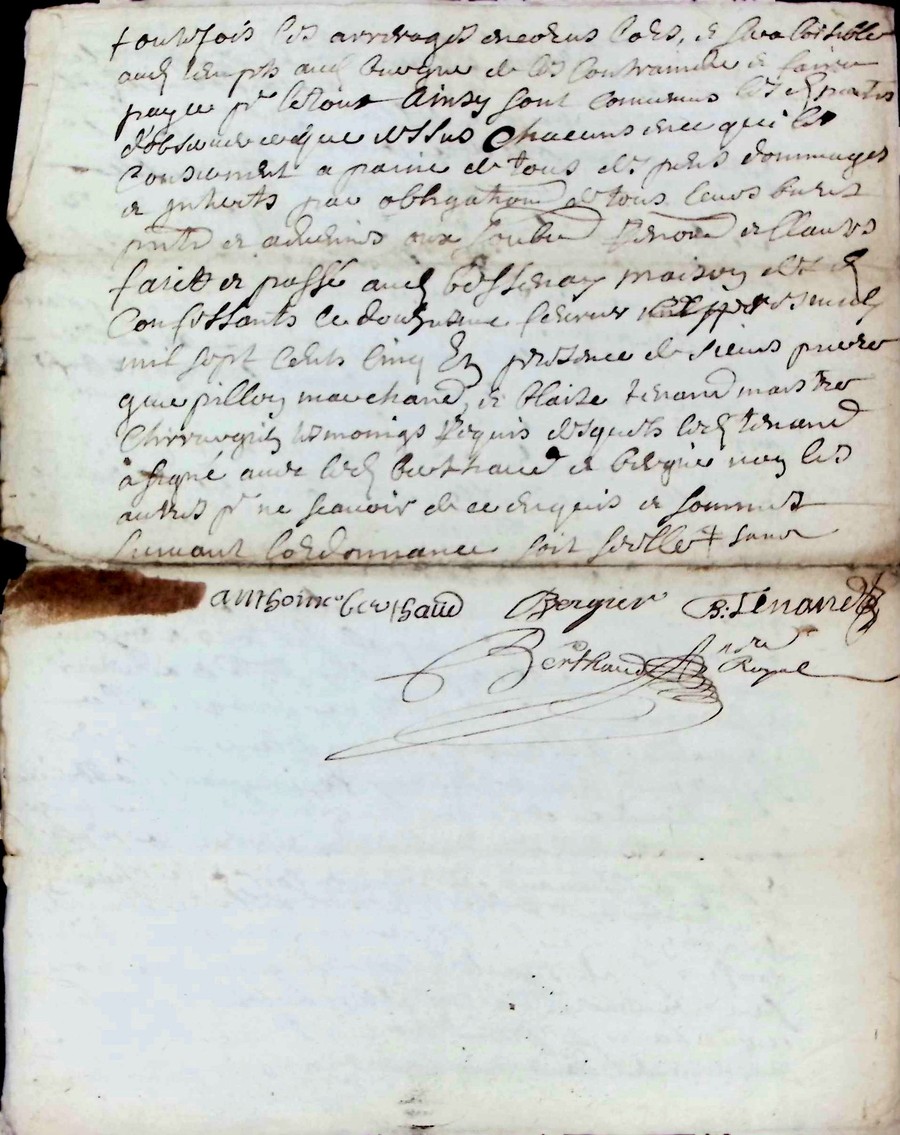 toutefois les arrerages encourus lors, et sera loisible
aud temps aud bergier de les contraindre et faire
payer pr le tout Ainsy sont convenus lesd parties
d'observer ce que dessus chacuns en ce qui les
concernent a paine de tous despens dommages
et intherets par obligation de tous leurs biens
pnts et advenirs aux soubz renon et clauses
faict et passé aud bessenay maison desd
confessants le douziesme febvrier
mil sept cents cinq En presence de sieurs pierre
pillon marchand, et blaise tenand maistre
chirurgien tesmoings requis desquels led tenand
a signé avec led berthaud et bergier non les
autres pr ne scavoir de ce enquis et sommés
suivant l'ordonnance soit scellé
anthoine berthaud Bergier B: Tenand
Berthaud nre Royal